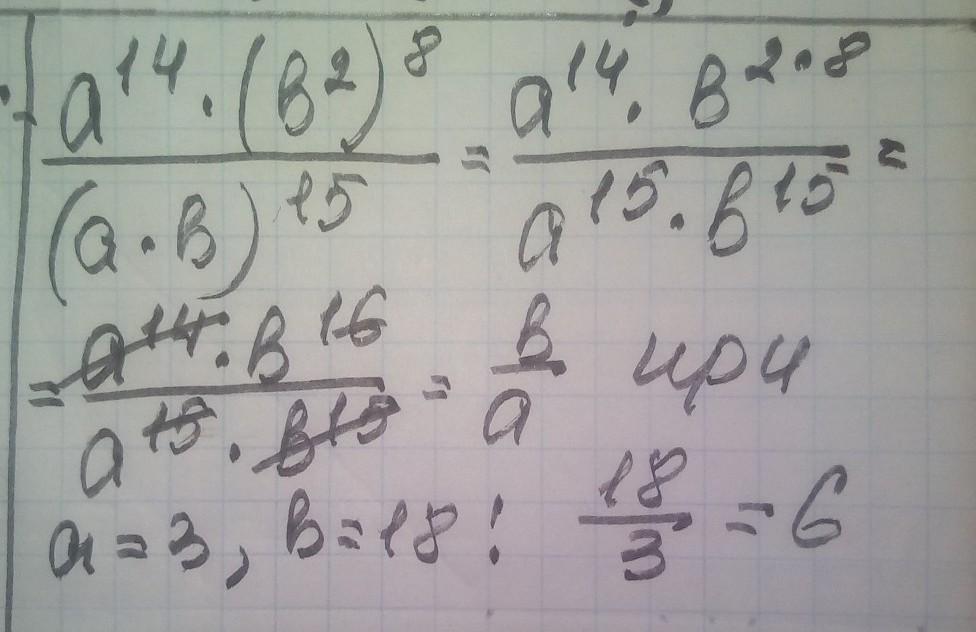 a^14 · (b^2)^8 / (a · b)^15 = a^14 · b^2·8 / a^15 · b^15 =
= a^14 · b^16 / a^15 · b^15 = b / a при
a = 3, b = 18 ! 18 / 3 = 6